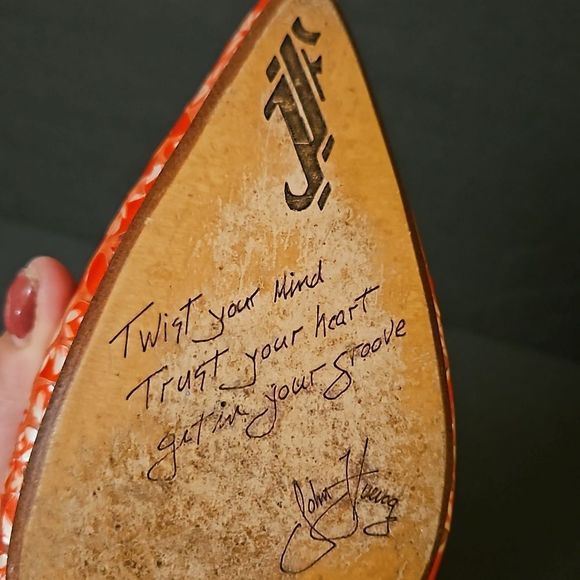 Twist your Mind
Trust your heart
get in your groove
John Fluevog